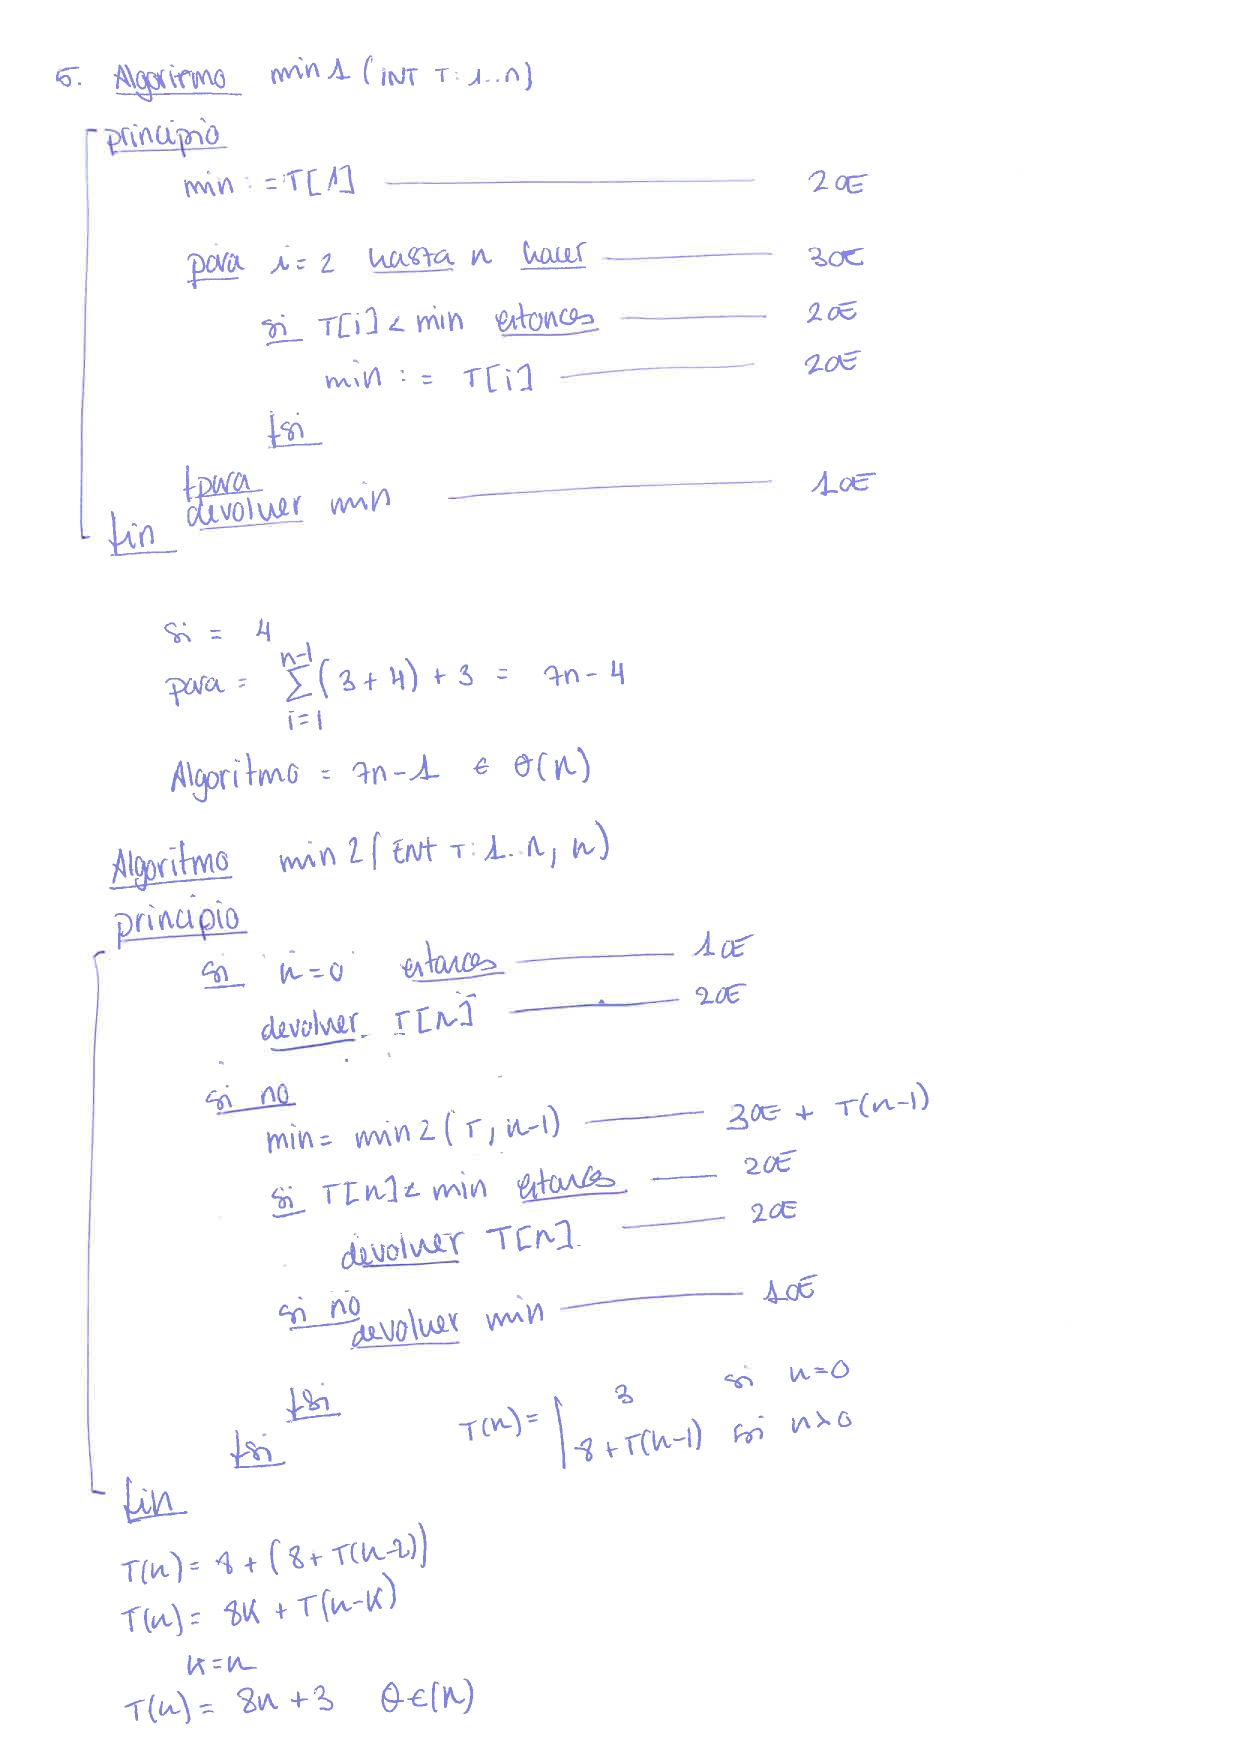 5. Algoritmo min1 (INT T: 1..n)
principio
min := T[1] 2OE
para i=2 hasta n hacer 3OE
si T[i] < min entonces 2OE
min := T[i] 2OE
fsi
fpara
devolver min 1OE
fin
si = 4
para = ∑_{i=1}^{n-1} (3+4) + 3 = 7n-4
Algoritmo = 7n-1 ∈ θ(n)
Algoritmo min2 (ENT T: 1..n, n)
principio
si n=0 entonces 1OE
devolver T[n] 2OE
si no
min = min2(T, n-1) 3OE + T(n-1)
si T[n] < min entonces 2OE
devolver T[n] 2OE
si no
devolver min 1OE
fsi
fsi
T(n) = | 3 si n=0
8+T(n-1) si n>0
fin
T(n) = 8 + (8+T(n-2))
T(n) = 8K + T(n-K)
K=n
T(n) = 8n+3 θ∈(n)